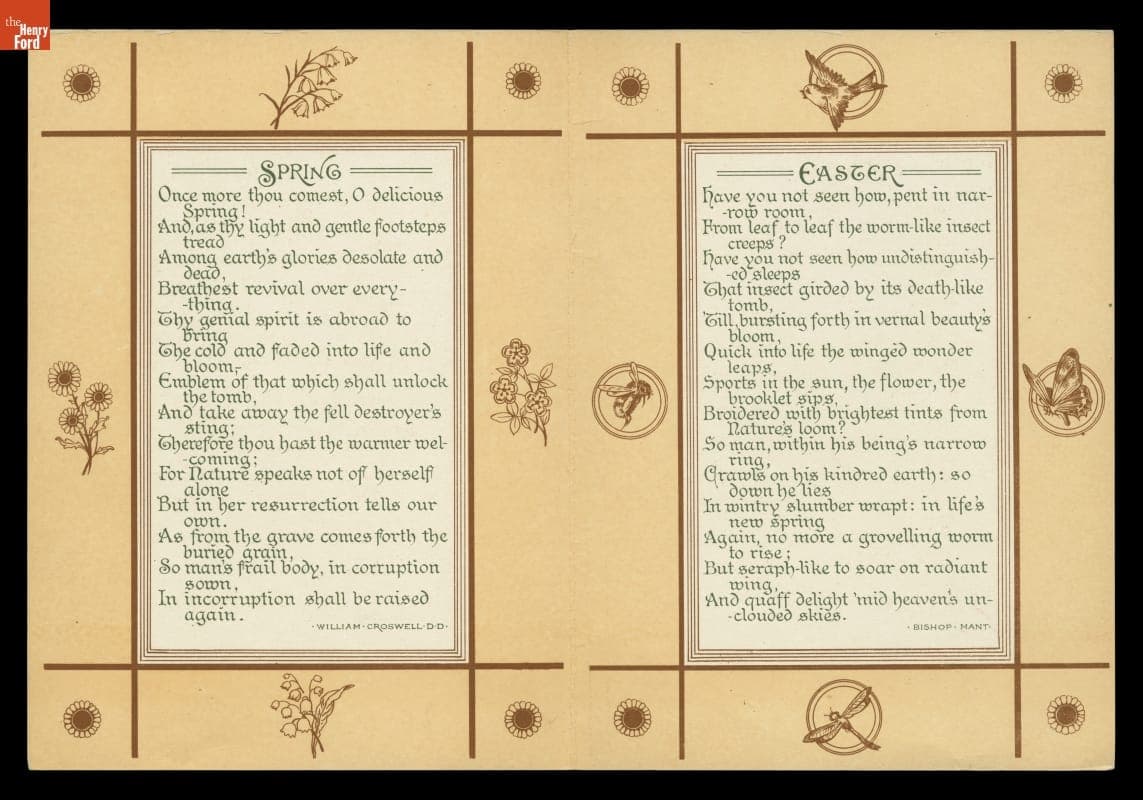 the
Henry
Ford
SPRING
Once more thou comest, O delicious
Spring!
And, as thy light and gentle footsteps
tread
Among earth's glories desolate and
dead,
Breathest revival over every-
-thing.
Thy genial spirit is abroad to
bring
The cold and faded into life and
bloom,-
Emblem of that which shall unlock
the tomb,
And take away the fell destroyer's
sting;
Therefore thou hast the warmer wel-
-coming;
For Nature speaks not of herself
alone
But in her resurrection tells our
own.
As from the grave comes forth the
buried grain,
So man's frail body, in corruption
sown,
In incorruption shall be raised
again.
·WILLIAM·CROSWELL·D·D·
EASTER
Have you not seen how, pent in nar-
-row room,
From leaf to leaf the worm-like insect
creeps?
Have you not seen how undistinguish-
-ed sleeps
That insect girded by its death-like
tomb,
'Till, bursting forth in vernal beauty's
bloom,
Quick into life the wingèd wonder
leaps,
Sports in the sun, the flower, the
brooklet sips,
Broidered with brightest tints from
Nature's loom?
So man, within his being's narrow
ring,
Crawls on his kindred earth: so
down he lies
In wintry slumber wrapt: in life's
new spring
Again, no more a grovelling worm
to rise;
But seraph-like to soar on radiant
wing,
And quaff delight 'mid heaven's un-
-clouded skies.
·BISHOP·MANT·